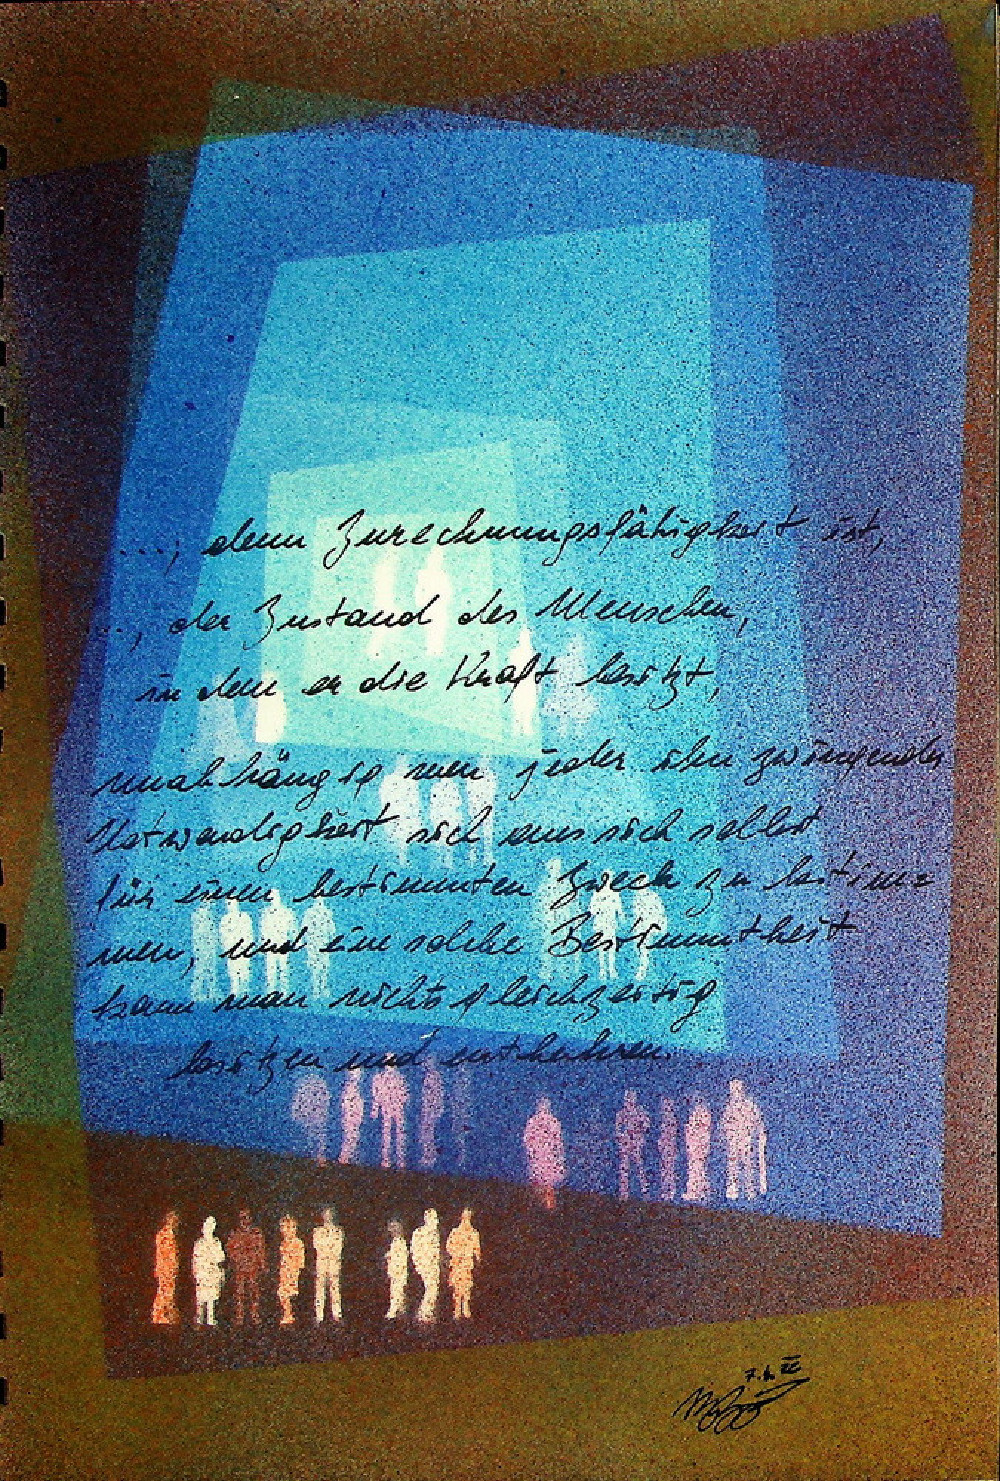 ..., denn Zurechnungsfähigkeit ist,
..., der Zustand des Menschen,
in dem er die Kraft besitzt,
unabhängig von jeder ihn zwingenden
Notwendigkeit sich aus sich selbst
für einen bestimmten Zweck zu bestim=
men, und eine solche Bestimmtheit
kann man nicht gleichzeitig
besitzen und entbehren.